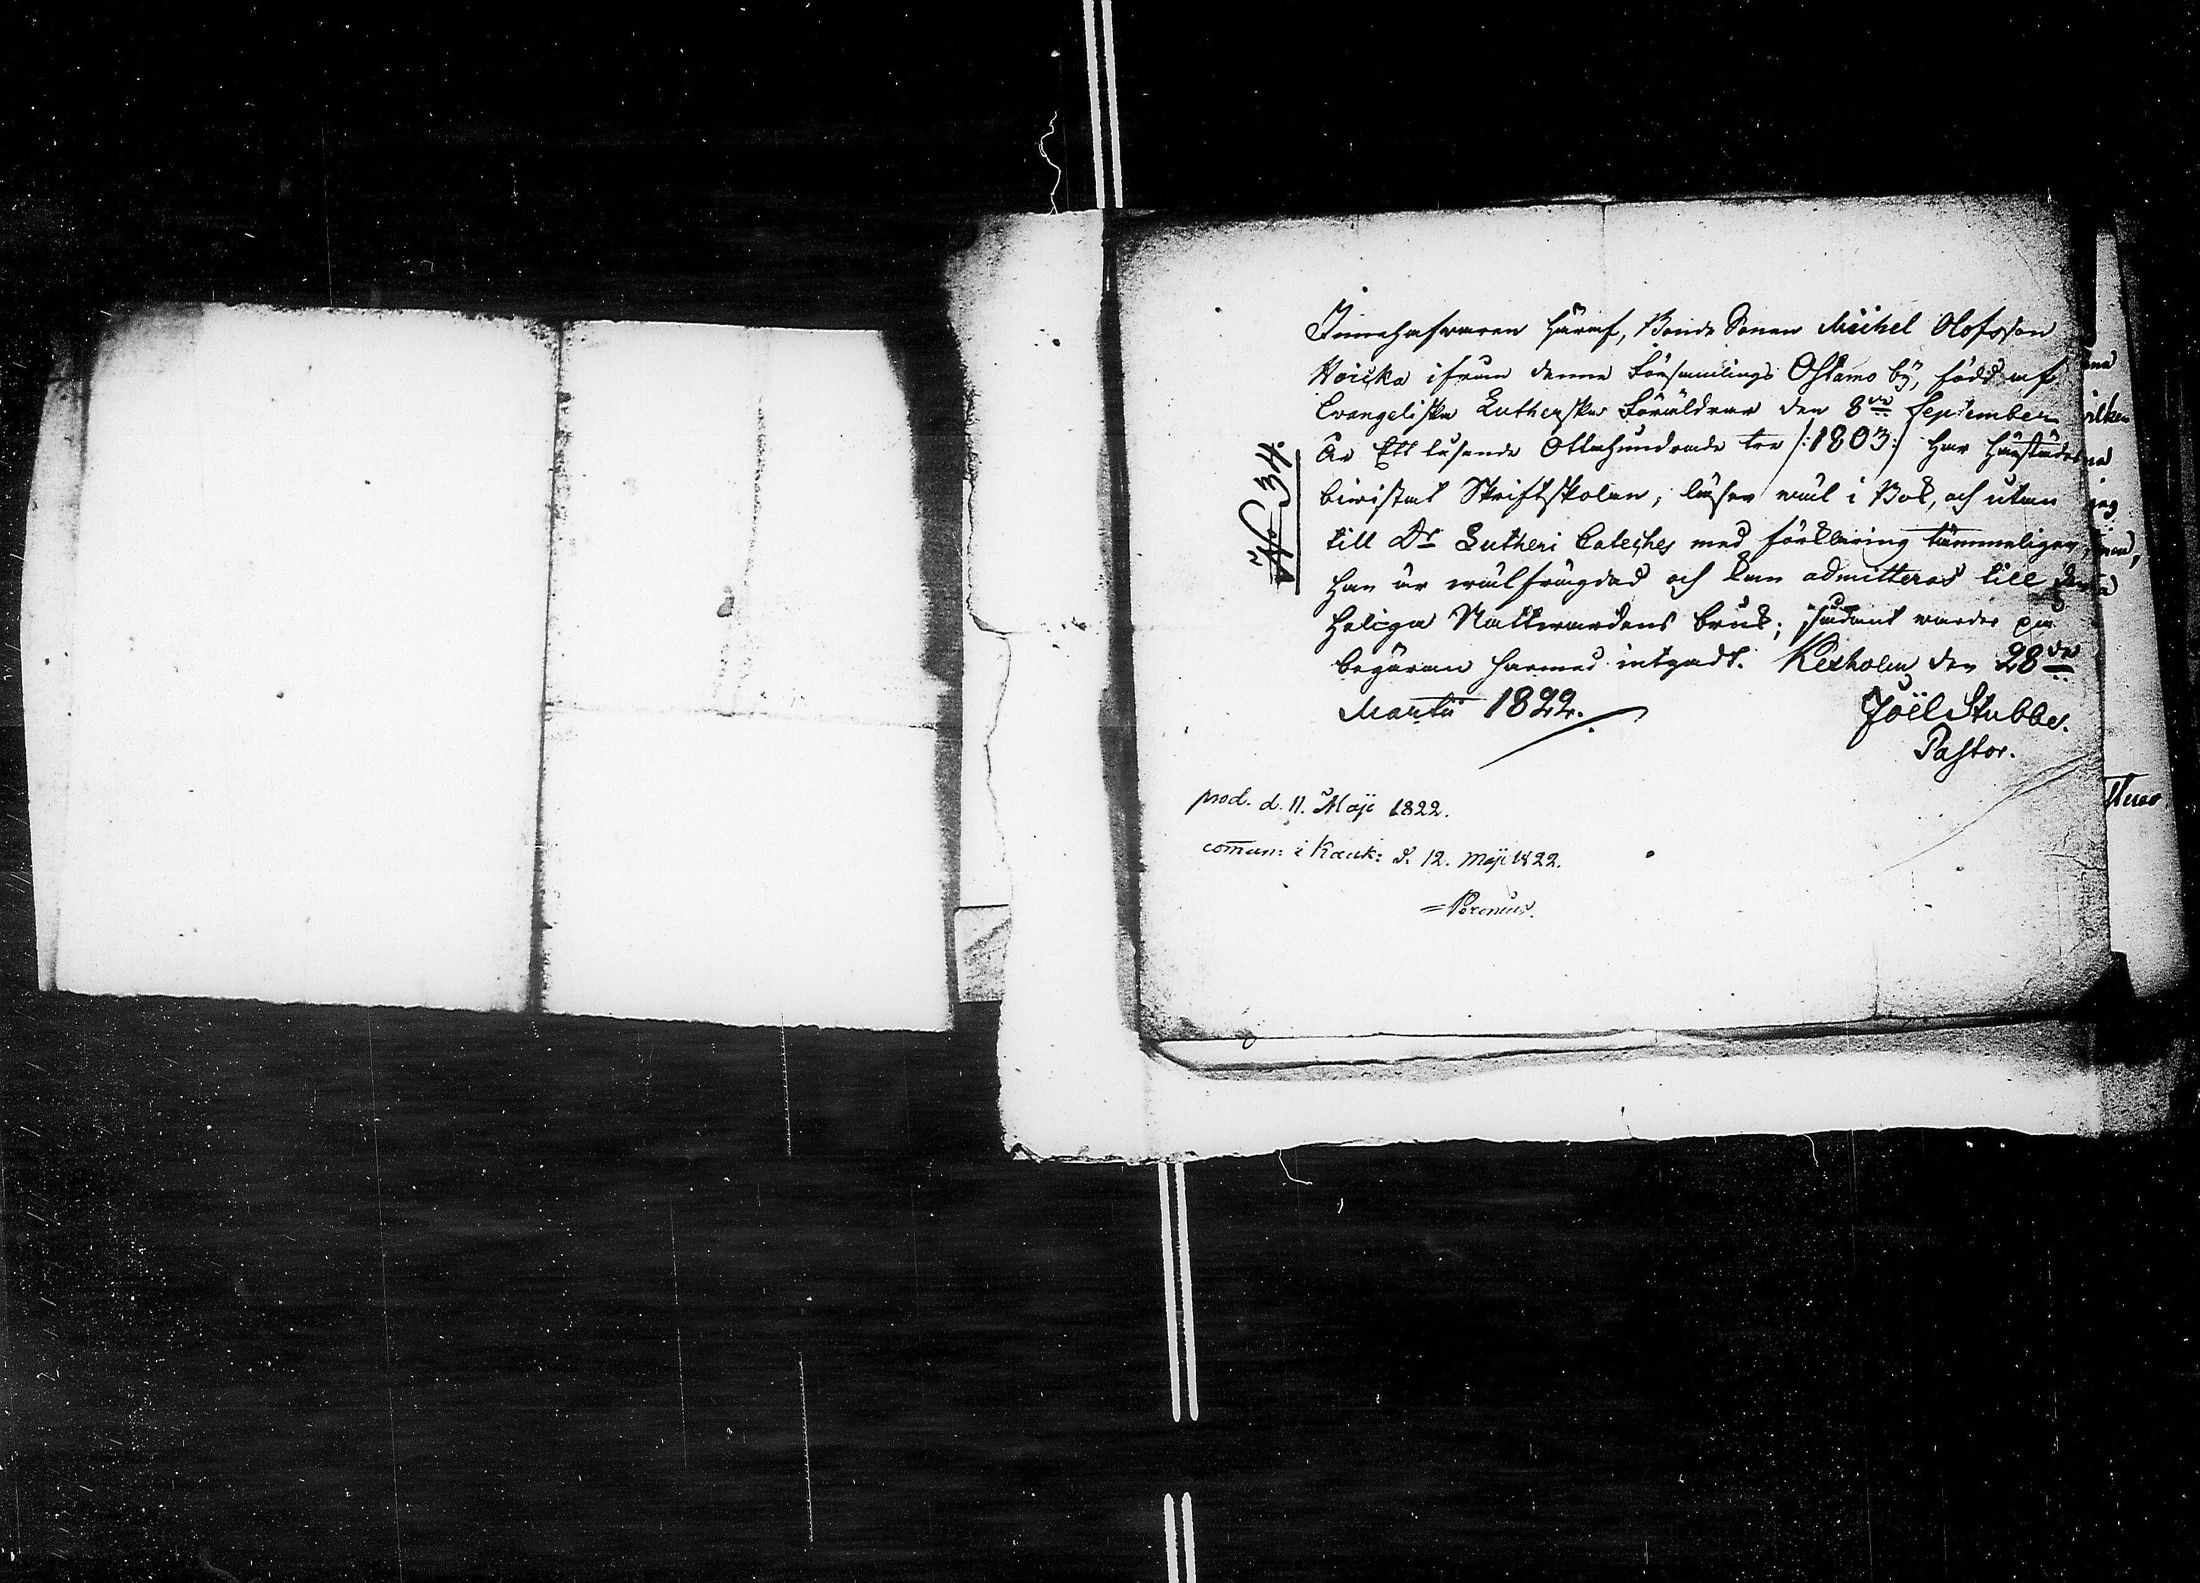 Innehafvaren häraf, Bonde Sonen Michel Olofsson
Hörkka ifrån denne Församlings Ostamo by, född af
Evangeliska Lutherska Föräldrar den 8de September
År Ett tusende Ottahundrade tre /:1803:/ har härstädes
biwistat Skriftskolan, läser wäl i Bok, och utan
till Dr Lutheri Cateches med förklaring tämmeligen,
han är wälfrägdad och kan admitteras till den
Heliga Nattwardens bruk; sådant warder på
begäran harmed intygadt. Kexholm den 28de
Martii 1822.
Joël Stubbe.
Pastor.
No 34.
prod. d. 11. Maji 1822.
comun: i Kauk: d. 12. Maji 1822.
Poronius.